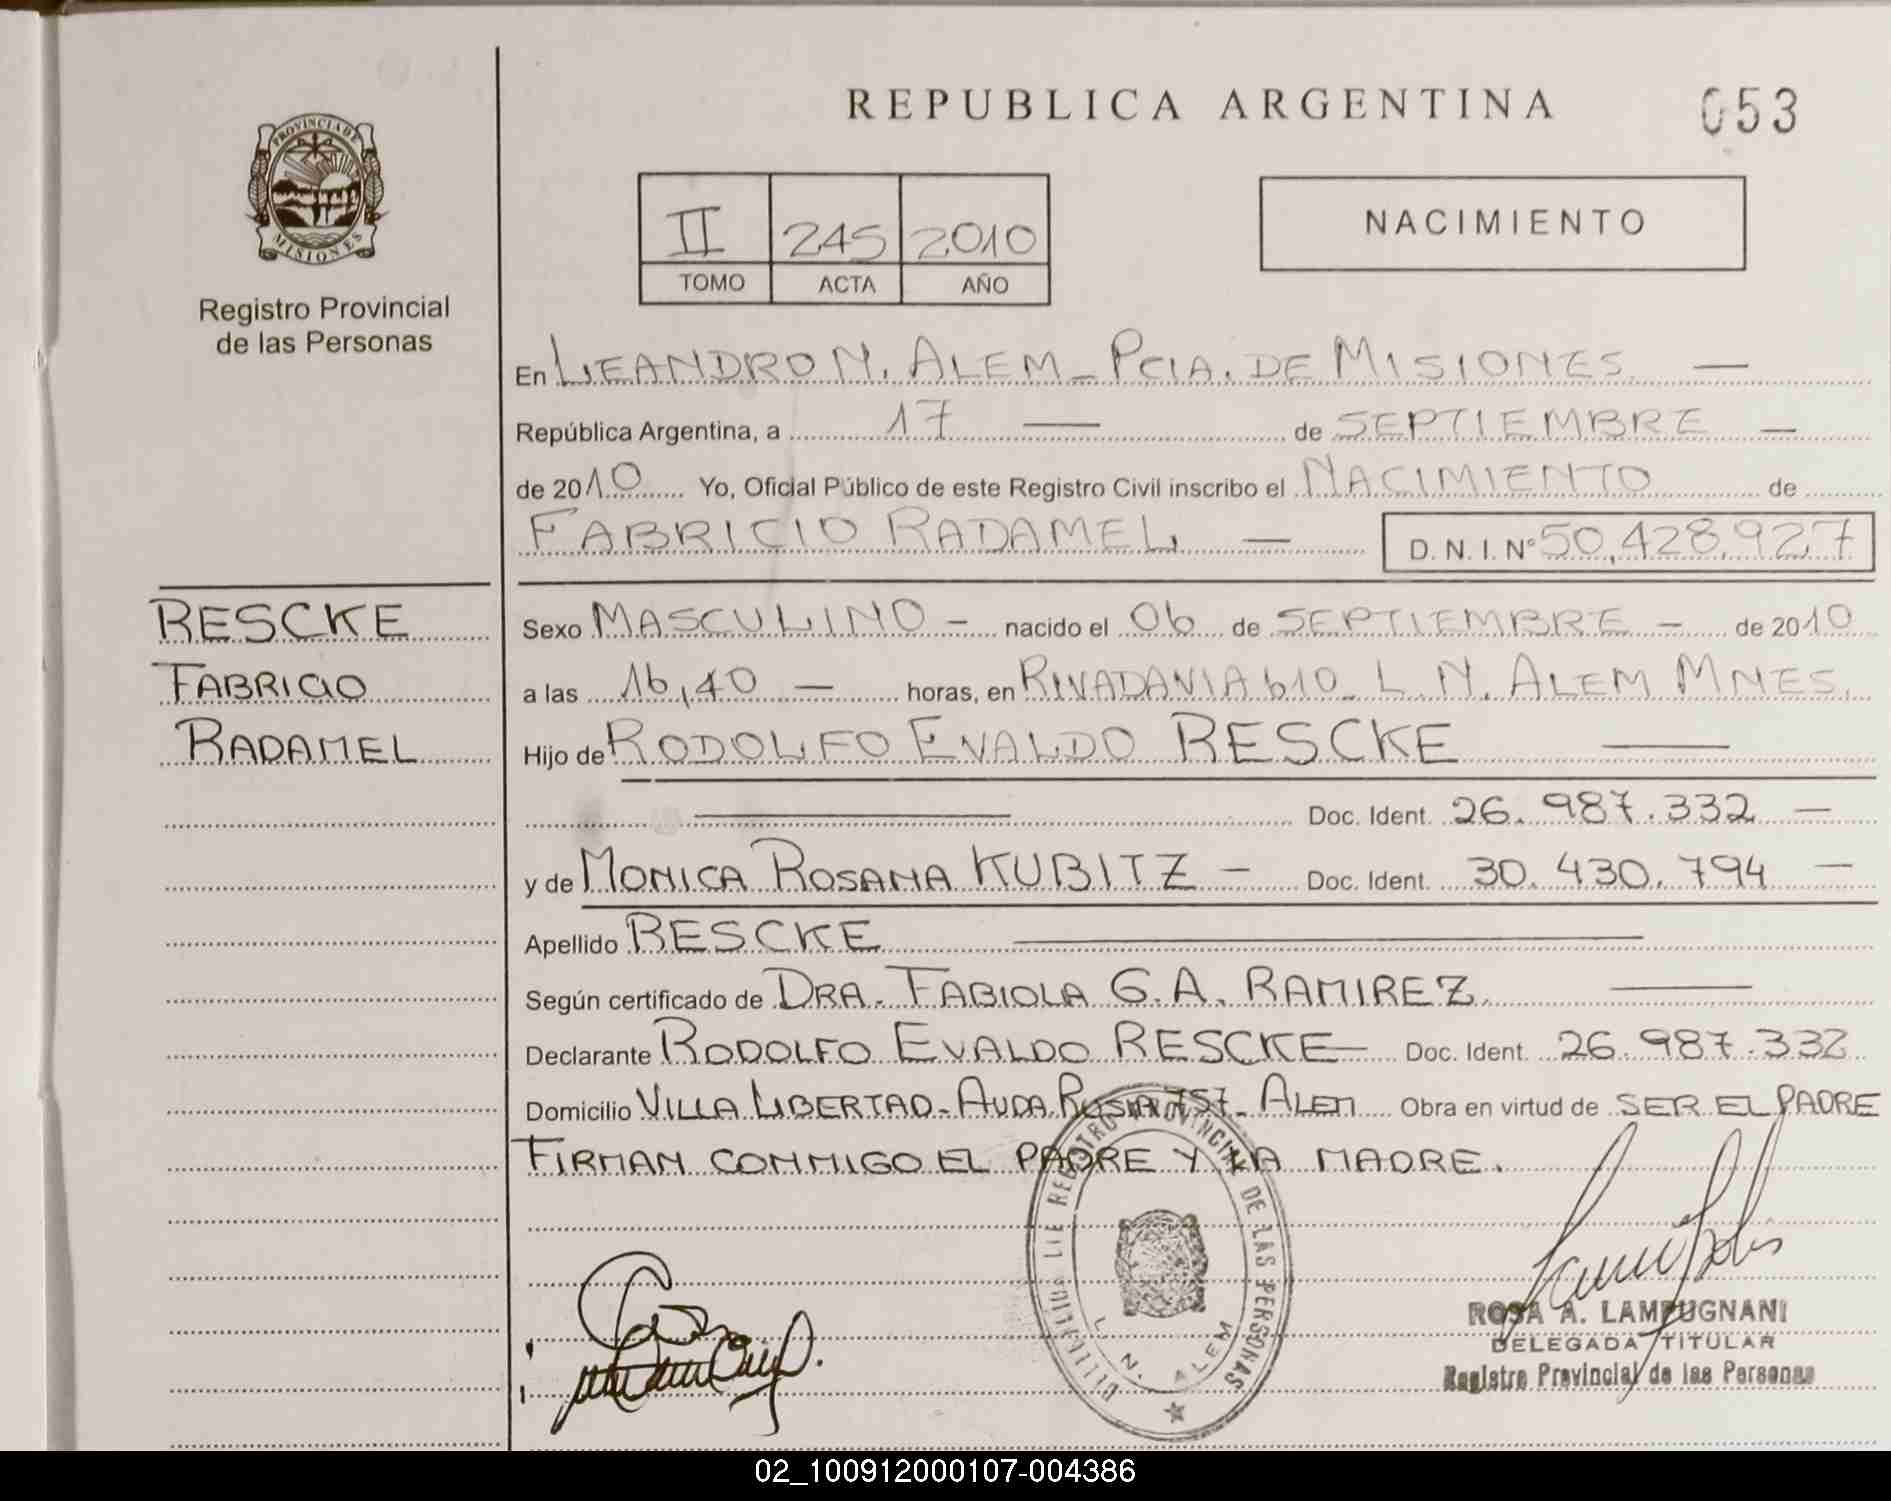 REPUBLICA ARGENTINA
053
PROVINCIA DE
MISIONES
Registro Provincial
de las Personas
II 245 2010
TOMO ACTA AÑO
NACIMIENTO
En LEANDRO N. ALEM - PCIA. DE MISIONES —
República Argentina, a 17 — de SEPTIEMBRE —
de 2010 Yo, Oficial Público de este Registro Civil inscribo el NACIMIENTO de
FABRICIO RADAMEL — D. N. I. N° 50,428,927
RESCKE
FABRICIO
RADAMEL
Sexo MASCULINO - nacido el 06 de SEPTIEMBRE - de 2010
a las 16,40 — horas, en RIVADAVIA 610 - L. N. ALEM MNES.
Hijo de RODOLFO EVALDO RESCKE —
— Doc. Ident. 26.987.332 —
y de MONICA ROSANA KUBITZ — Doc. Ident. 30.430.794 —
Apellido RESCKE —
Según certificado de DRA. FABIOLA G.A. RAMIREZ —
Declarante RODOLFO EVALDO RESCKE — Doc. Ident. 26.987.332
Domicilio VILLA LIBERTAD - AVDA. RUSIA 757 - ALEM Obra en virtud de SER EL PADRE
FIRMAN CONMIGO EL PADRE Y LA MADRE.
REGISTRO PROVINCIAL DE LAS PERSONAS
L. N. ALEM
ROSA A. LAMPUGNANI
DELEGADA TITULAR
Registro Provincial de las Personas
02_100912000107-004386